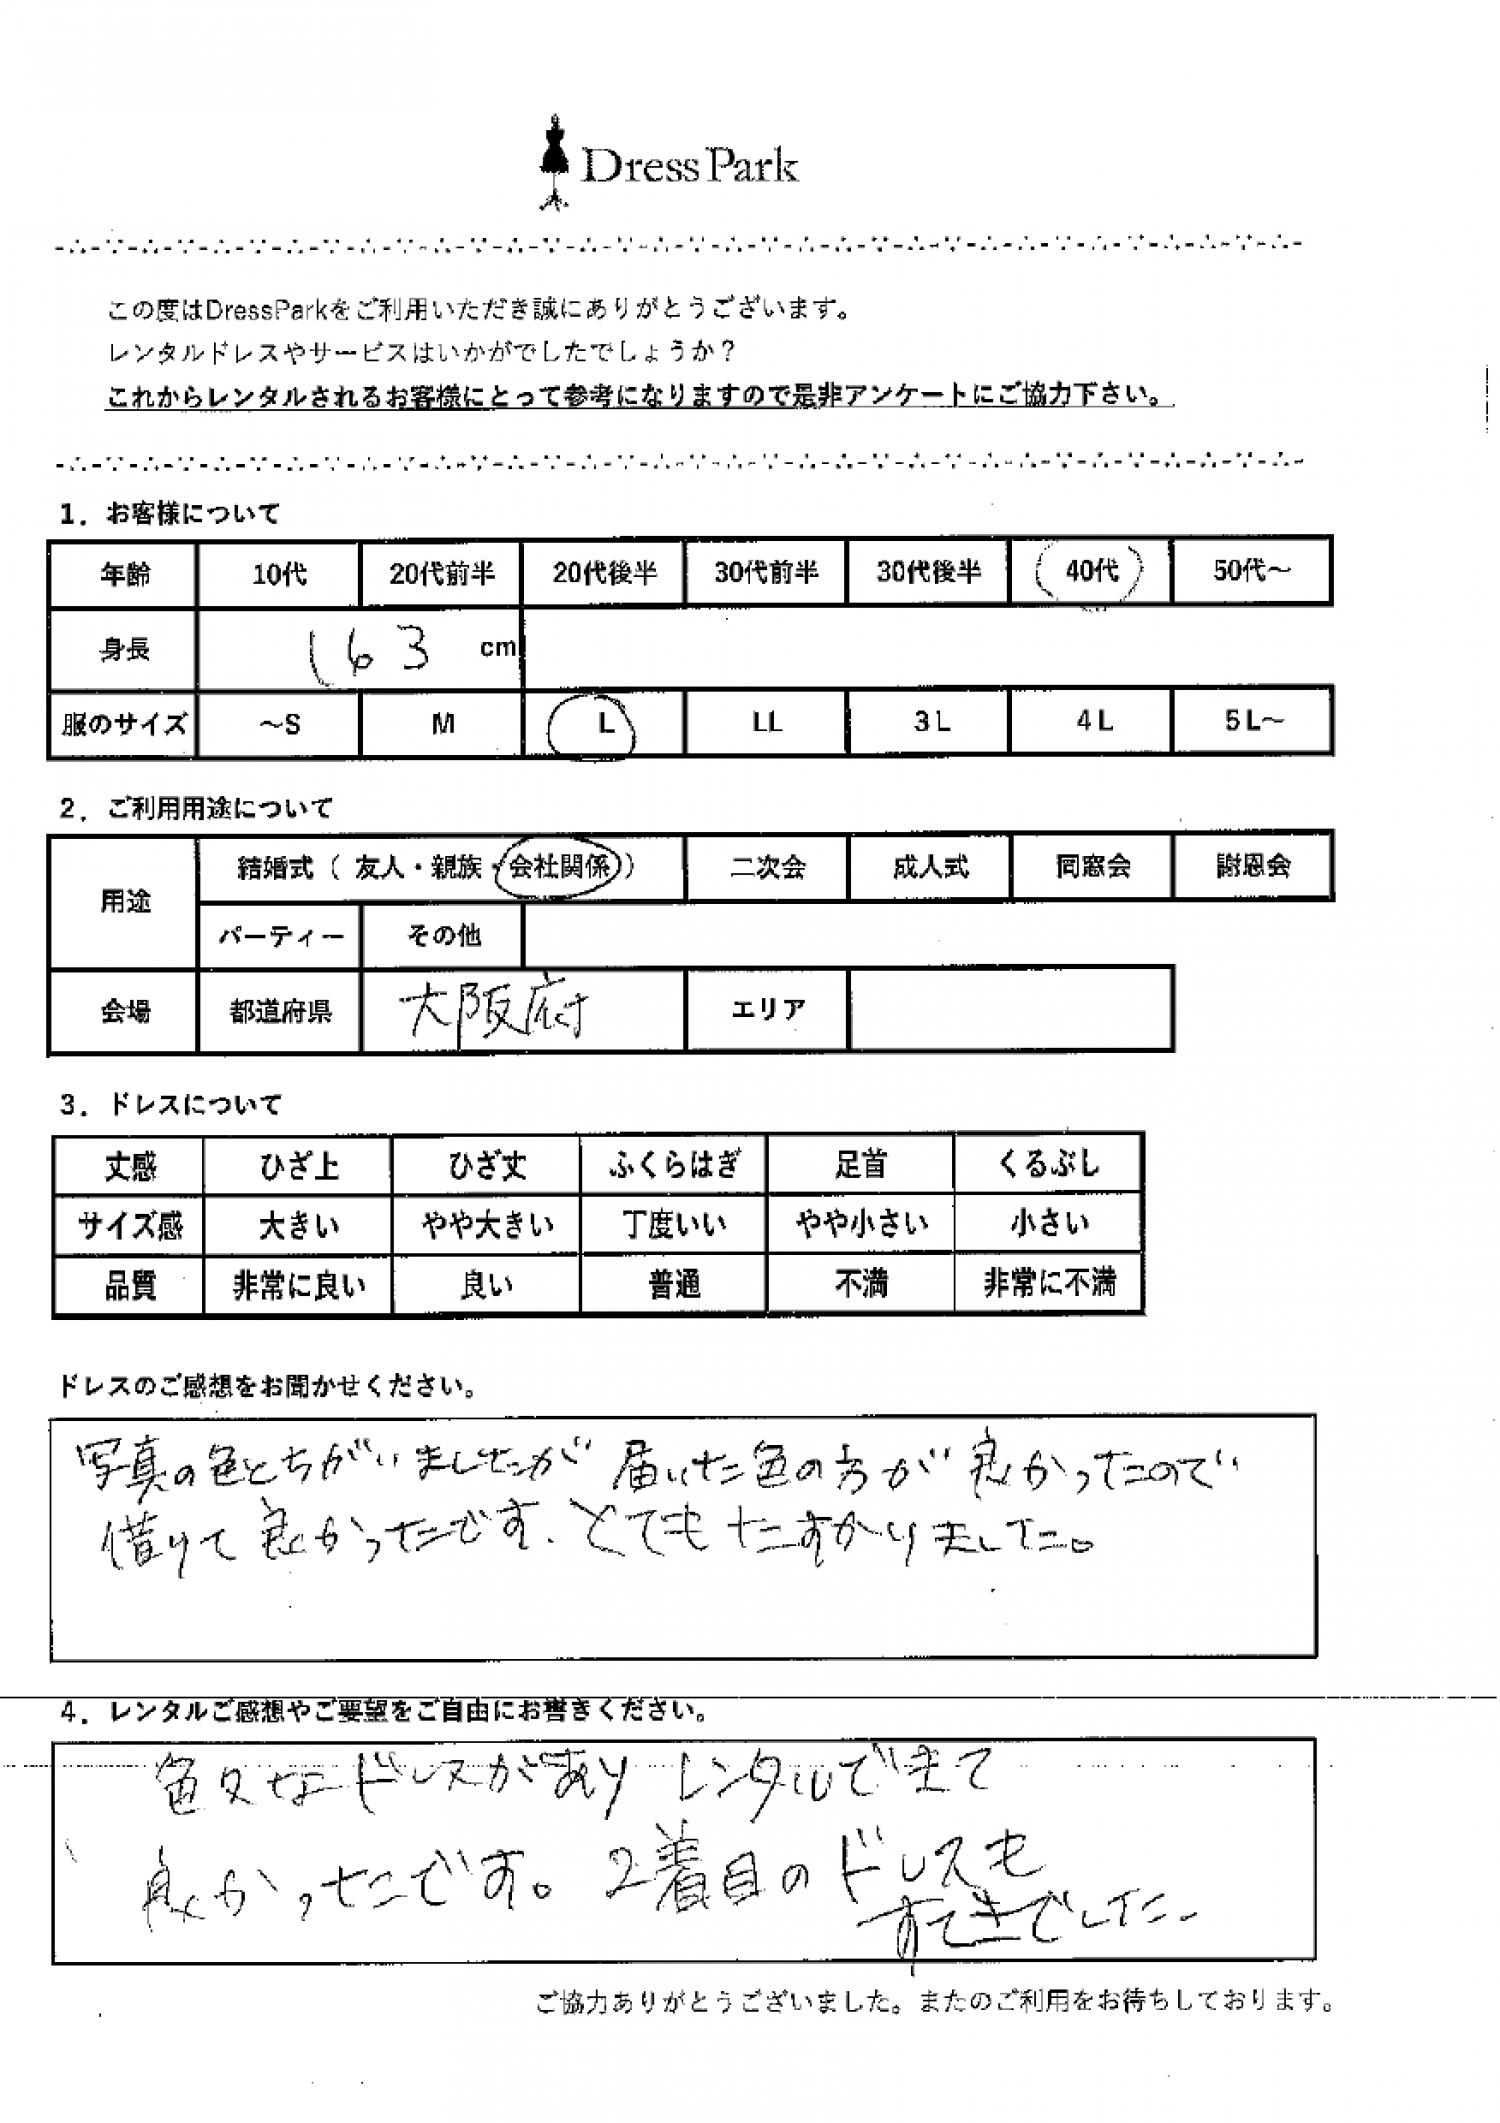 Dress Park
この度はDressParkをご利用いただき誠にありがとうございます。
レンタルドレスやサービスはいかがでしたでしょうか？
これからレンタルされるお客様にとって参考になりますので是非アンケートにご協力下さい。
1．お客様について
年齢 10代 20代前半 20代後半 30代前半 30代後半 40代 50代～
身長 163 cm
服のサイズ ～S M L LL 3L 4L 5L～
2．ご利用用途について
用途 結婚式（ 友人・親族・会社関係） 二次会 成人式 同窓会 謝恩会
パーティー その他
会場 都道府県 大阪府 エリア
3．ドレスについて
丈感 ひざ上 ひざ丈 ふくらはぎ 足首 くるぶし
サイズ感 大きい やや大きい 丁度いい やや小さい 小さい
品質 非常に良い 良い 普通 不満 非常に不満
ドレスのご感想をお聞かせください。
写真の色とちがいましたが 届いた色の方が良かったので
借りて良かったです、とてもたすかりました。
4．レンタルご感想やご要望をご自由にお書きください。
色々なドレスがあり レンタルできて
良かったです。2着目のドレスも
すてきでした。
ご協力ありがとうございました。またのご利用をお待ちしております。